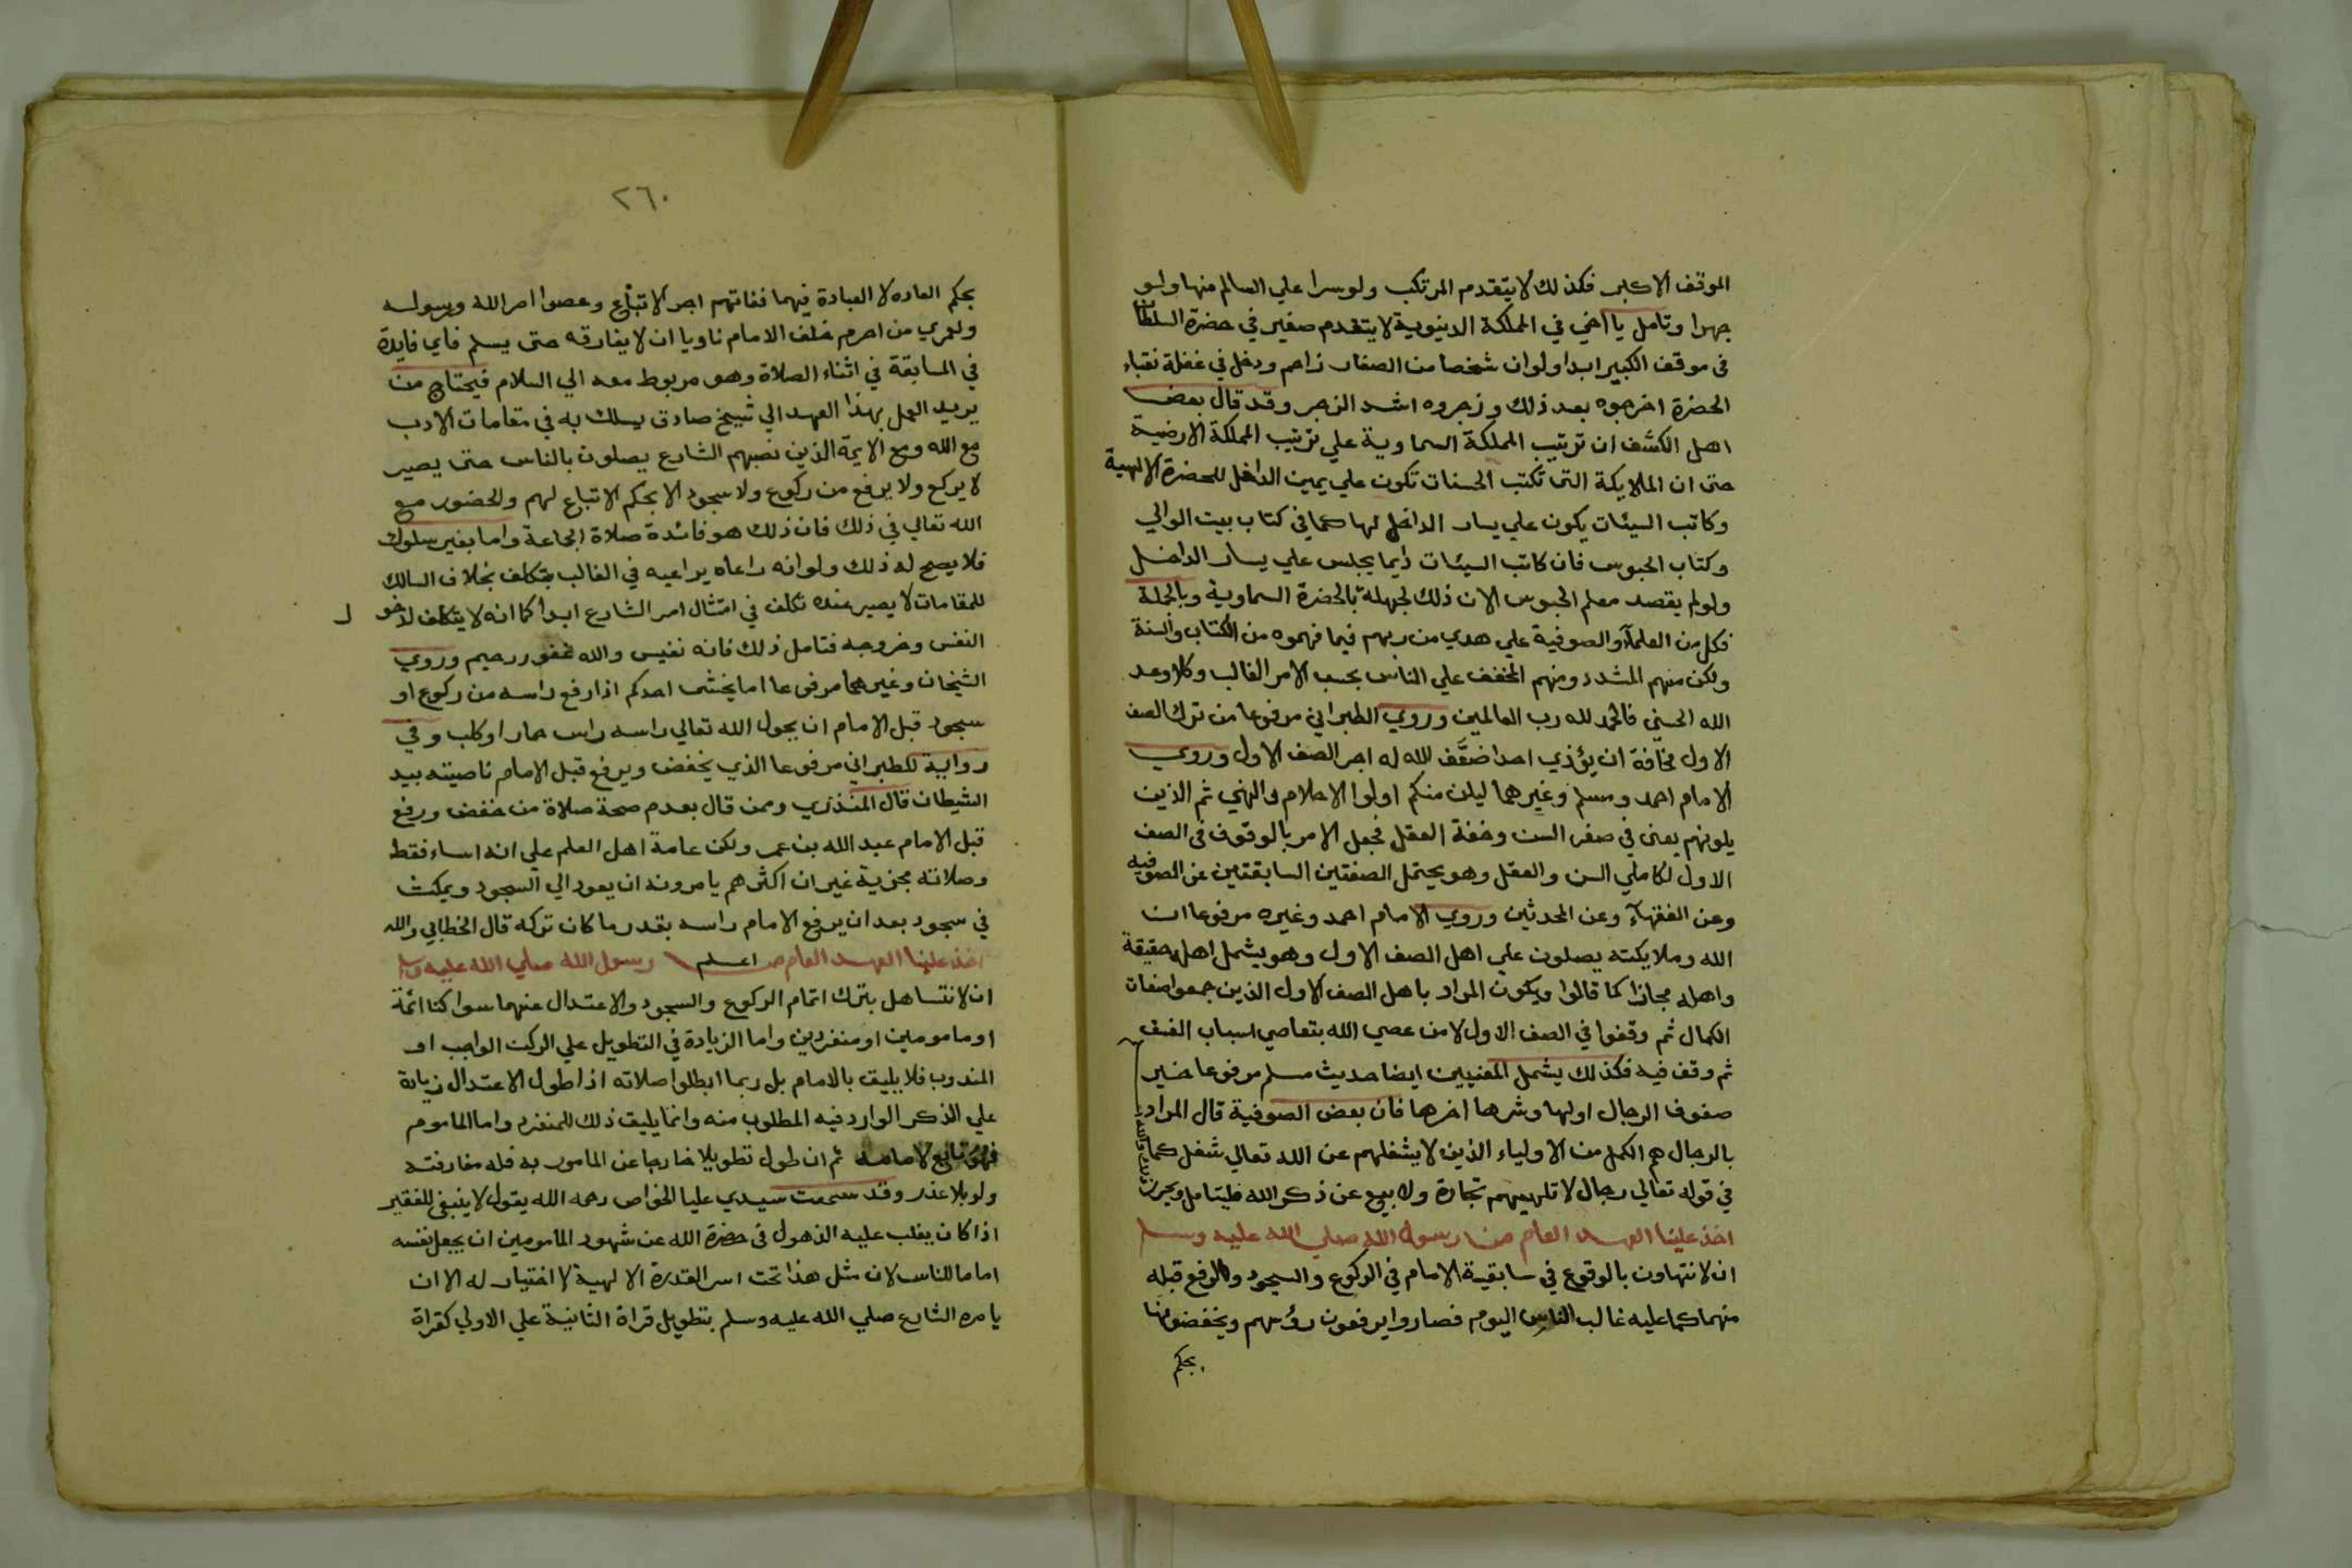 الموقف الاكبر فكذلك لا يتقدم المرتكب ولو سرا علي السالم منها ولو
جهرا وتامل يا اخي في المملكة الدنيوية لا يتقدم صغير في حضرة السلطان
في موقف الكبير ابدا ولو ان شخصا من الصغار زاحم ودخل في غفلة نقباء
الحضرة اخرجوه بعد ذلك وزجروه اشد الزجر وقد قال بعض
اهل الكشف ان ترتيب المملكة السماوية علي ترتيب المملكة الارضية
حتى ان الملايكة التى تكتب الحسنات تكون علي يمين الداخل للحضرة الالهية
وكاتب السيئات يكون علي يسار الداخل لها كما في كتاب بيت الوالي
وكتاب الحبوس فان كاتب السيئات دايما يجلس علي يسار الداخل
ولو لم يقصد معلم الحبوس الان ذلك لجهله بالحضرة السماوية وبالجملة
فكل من العلمآء والصوفية علي هدي من ربهم فيما فهموه من الكتاب والسنة
ولكن منهم المشدد ومنهم المخفف علي الناس بحسب الامر الغالب وكلا وعد
الله الحسني فالحمد لله رب العالمين وروي الطبراني مرفوعا من ترك الصف
الاول مخافة ان يؤذي احدا ضعَّف الله له اجر الصف الاول وروي
الامام احمد ومسلم وغيرهما ليلن منكم اولوا الاحلام والنهي ثم الذين
يلونهم يعنى في صغر السن وخفة العقل فجعل الامر بالوقوف في الصف
الاول لكاملي السن والعقل وهو يحتمل الصفتين السابقتين عن الصوفيه
وعن الفقهآء وعن المحدثين وروي الامام احمد وغيره مرفوعا ان
الله وملايكته يصلون علي اهل الصف الاول وهو يشمل اهله حقيقة
واهله مجازا كما قالوا ويكون المراد باهل الصف الاول الذين جمعوا صفات
الكمال ثم وقفوا في الصف الاول لا من عصي الله بتعاصي اسباب الفسق
ثم وقف فيه فكذلك يشمل المعنيين ايضا حديث مسلم مرفوعا خير
صفوف الرجال اولها وشرها اخرها فان بعض الصوفية قال المراد
بالرجال هم الكمل من الاولياء الذين لا يشغلهم عن الله تعالي شغل كما
في قوله تعالي رجال لا تلهيهم تجارة ولا بيع عن ذكر الله فليتامل ويحرر ذلك والله
اخذ علينا العهد العام من رسول الله صلي الله عليه وسلم
ان لا نتهاون بالوقوع في سابقية الامام في الركوع والسجود والرفع قبله
منهما كما عليه غالب الناس اليوم فصاروا يرفعون رؤسهم ويخفضونها
بحكم
٢٦٠
بحكم العاده لا العبادة فيهما ففاتهم اجر الاتباع وعصوا امر الله ورسوله
ولعمري من احرم خلف الامام ناويا ان لا يفارقه حتى يسلم فاي فايدة
في المسابقة في اثناء الصلاة وهو مربوط معه الي السلام فيحتاج من
يريد العمل بهذا العهد الي شيخ صادق يسلك به في مقامات الادب
مع الله ومع الايمة الذين نصبهم الشارع يصلون بالناس حتى يصير
لا يركع ولا يرفع من ركوع ولا سجود الا بحكم الاتباع لهم والحضور مع
الله تعالي في ذلك فان ذلك هو فائدة صلاة الجماعة واما بغير سلوك
فلا يصح له ذلك ولو انه راعاه يراعيه في الغالب بتكلف بخلاف السالك
للمقامات لا يصير عنده تكلف في امتثال امر الشارع ابدا كما انه لا يتكلف لدخول
النفس وخروجه فتامل ذلك فانه نفيس والله غفور رحيم وروي
الشيخان وغيرهما مرفوعا اما يخشى احدكم اذا رفع راسه من ركوع او
سجود قبل الامام ان يحول الله تعالي راسه راس حمار او كلب وفي
رواية للطبراني مرفوعا الذي يخفض ويرفع قبل الامام ناصيته بيد
الشيطان قال المنذري وممن قال بعدم صحة صلاة من خفض ورفع
قبل الامام عبد الله بن عمر ولكن عامة اهل العلم علي انه اساء فقط
وصلاته مجزية غير ان اكثرهم يامرونه ان يعود الي السجود ويمكث
في سجوده بعد ان يرفع الامام راسه بقدر ما كان تركه قال الخطابي والله
اعلم
اخذ علينا العهد العام من رسول الله صلي الله عليه وسلم
ان لا نتساهل بترك اتمام الركوع والسجود والاعتدال عنهما سوا كنا ائمة
او مامومين او منفردين واما الزيادة في التطويل علي الركن الواجب او
المندوب فلا يليق بالامام بل ربما ابطلوا صلاته اذا طول الاعتدال زيادة
علي الذكر الوارد فيه المطلوب منه وانما يليق ذلك للمنفرد واما الماموم
فهو تابع لامامه ثم ان طول تطويلا خارجا عن المامور به فله مفارقته
ولو بلا عذر وقد سمعت سيدي عليا الخواص رحمه الله يقول لا ينبغي للفقير
اذا كان يغلب عليه الذهول في حضرة الله عن شهود المامومين ان يجعل نفسه
اماما للناس لان مثل هذا تحت اسر القدرة الالهية لا اختيار له الا ان
يامره الشارع صلي الله عليه وسلم بتطويل قراة الثانية علي الاولي كقراة